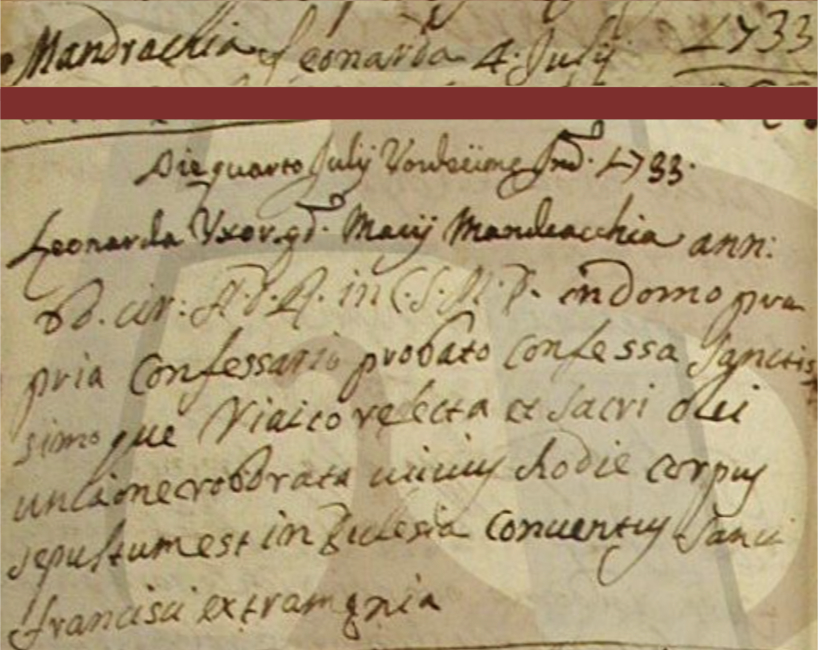 Mandracchia Leonarda 4. July 1733
Die quarto July Ind. 1733.
Leonarda Uxor qd. Mandracchia ann:
cir: in C.S.M.E. in domo pro
pria Confessario probato confessa Sanctis
simoque Viatico refecta et Sacri olei
unctione roborata cuius hodie corpus
sepultum est in Ecclesia Conventus Sancti
francisci extra menia